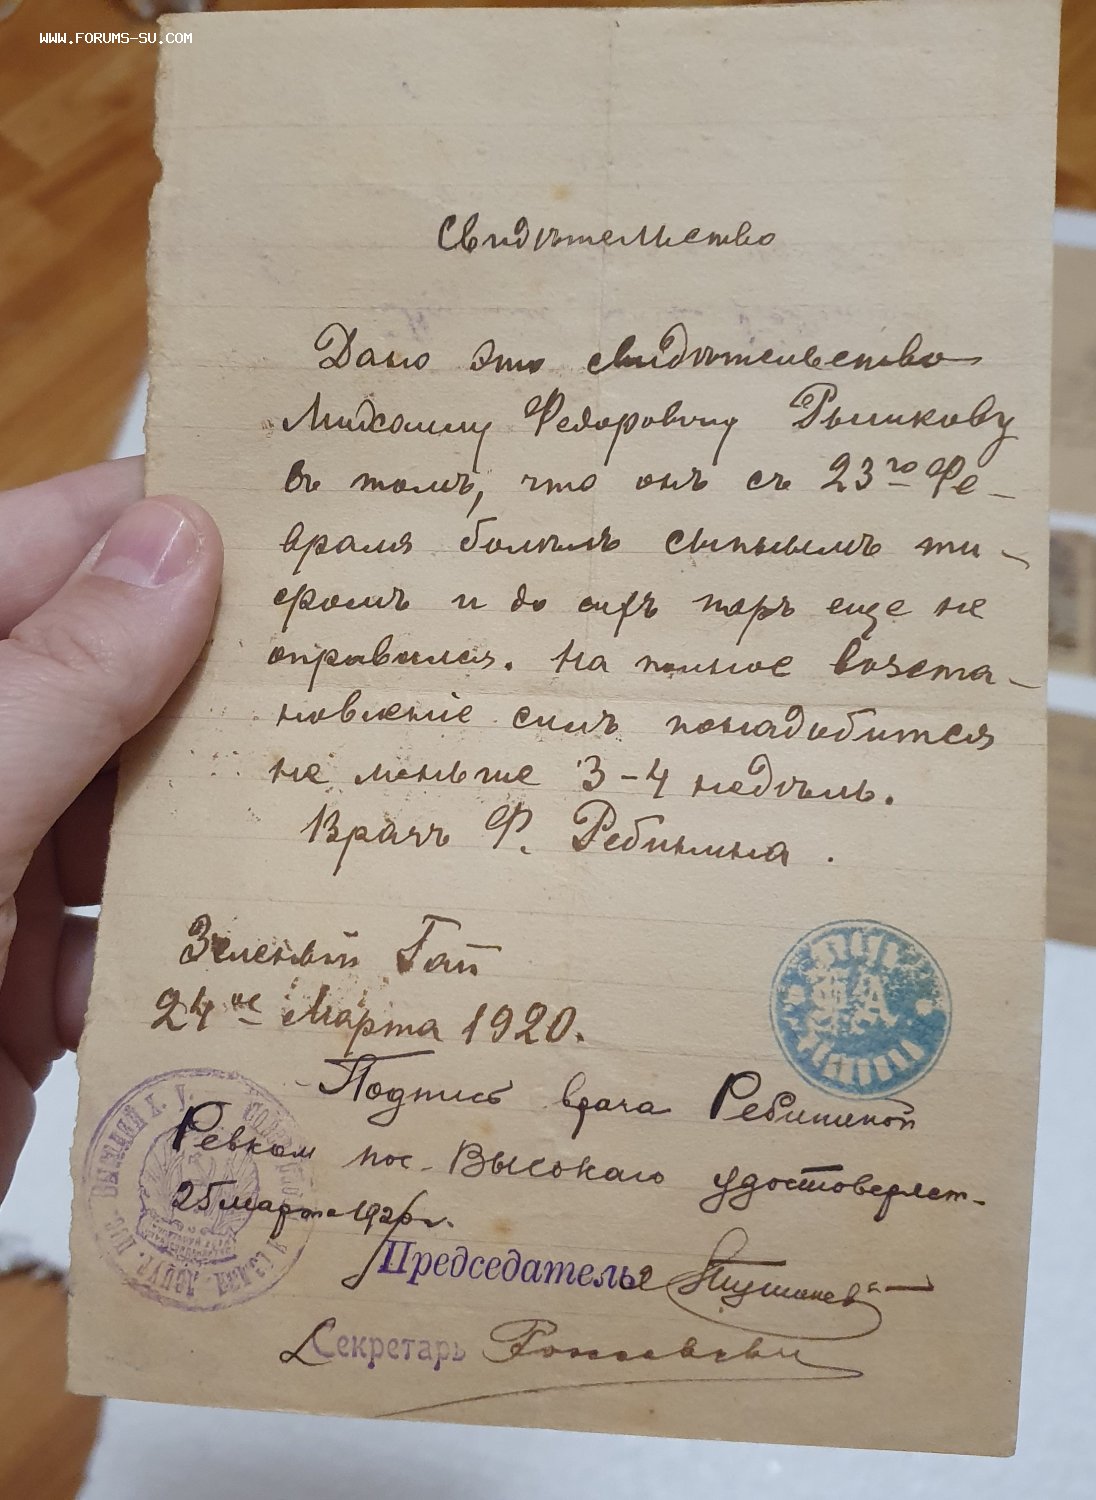 WWW.FORUMS-SU.COM
Свидѣтельство
Дано это свидѣтельство
Михаилу Федоровичу Рышкову
въ томъ, что онъ съ 23го Фе-
враля болѣлъ сыпнымъ ти-
фомъ и до сихъ поръ еще не
оправился. На полное возста-
новленіе силъ понадобится
не меньше 3-4 недѣль.
Врачъ Ф. Ребинина.
Зеленый Гай
24ое Марта 1920.
Подпись врача Ребининой
Ревком пос. Высокаго удостоверяет.
25 марта 1920 г.
Председатель
Секретарь